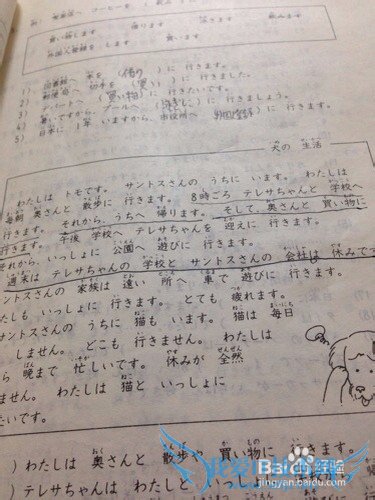 買い物します 借ります 泳ぎます 飲みます
外国人登録を します 買います
1) 図書館へ 本を (借り) に 行きます。
2) 郵便局へ 切手を (買い) に 行きました。
3) デパートへ (買い物) に 行きたいです。
4) 暑いですから、プールへ (泳ぎ) に 行きましょう。
5) 日本に 1年 いますから、市役所へ に 行きます。
犬の 生活
わたしは トモです。 サントスさんの うちに います。 わたしは
毎朝 奥さんと 散歩に 行きます。 8時ごろ テレサちゃんと 学校へ
行きます。 それから、うちへ 帰ります。 そして、奥さんと 買い物に
行きます。 午後 学校へ テレサちゃんを 迎えに 行きます。
それから、いっしょに 公園へ 遊びに 行きます。
週末は テレサちゃんの 学校と サントスさんの 会社は 休みで
ントスさんの 家族は 遠い 所へ 車で 遊びに 行きます。
たしも いっしょに 行きます。 とても 疲れます。
サントスさんの うちに 猫も います。 猫は 毎日
しません。 どこも 行きません。 わたしは
ら 晩まで 忙しいです。 休みが 全然
ません。 わたしは 猫と いっしょに
たいです。
) わたしは 奥さんと 散歩や 買い物に 行きます。
) テレサちゃんは わたしと いっしょに
Baidu 经验
jingyan.baidu.com